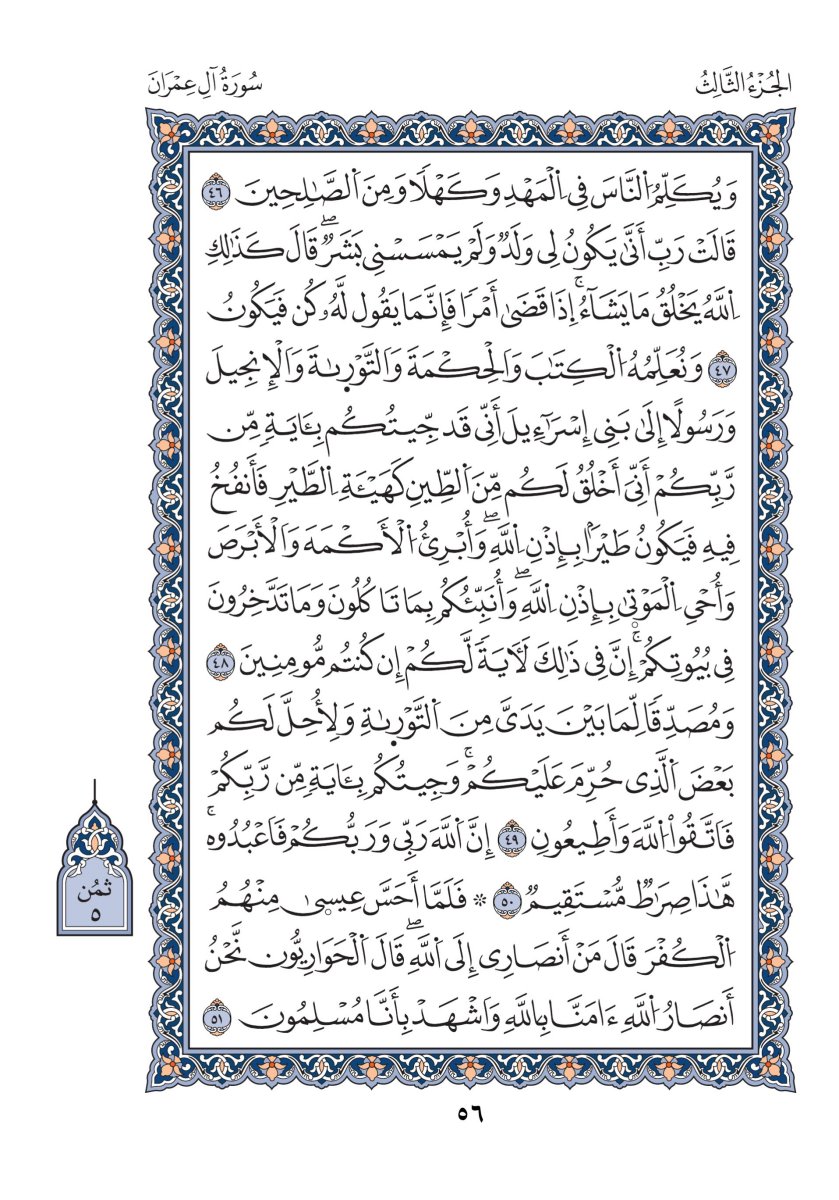 الجُزْءُ الثَّالِثُ
سُورَةُ آلِ عِمْرَانَ
وَيُكَلِّمُ اُ۬لنَّاسَ فِے اِ۬لْمَهْدِ وَكَهْلًا وَمِنَ اَ۬لصَّٰلِحِينَ ٤٦
قَالَتْ رَبِّ أَنّ۪يٰ يَكُونُ لِے وَلَدٌ وَلَمْ يَمْسَسْنِے بَشَرٌۖ قَالَ كَذَٰلِكِ
اِ۬للَّهُ يَخْلُقُ مَا يَشَآءُۚ إِذَا قَضَىٰ أَمْرًا فَإِنَّمَا يَقُول لَّهُۥ كُن فَيَكُونُ
٤٧ وَنُعَلِّمُهُ اُ۬لْكِتَٰبَ وَالْحِكْمَةَ وَالتَّوْر۪ىٰةَ وَالْإِنجِيلَ
وَرَسُولًا إِلَىٰ بَنِے إِسْرَآءِيلَ أَنِّے قَد جِّيتُكُم بِـَٔايَةٍ مِّن
رَّبِّكُمْ أَنِّيَ أَخْلُقُ لَكُم مِّنَ اَ۬لطِّينِ كَهَيْـَٔةِ اِ۬لطَّيْرِ فَأَنفُخُ
فِيهِ فَيَكُونُ طَيْرًۢا بِإِذْنِ اِ۬للَّهِۖ وَأُبْرِئُ اُ۬لْأَكْمَهَ وَالْأَبْرَصَ
وَأُحْيِ اِ۬لْمَوْت۪ىٰ بِإِذْنِ اِ۬للَّهِۖ وَأُنَبِّئُكُم بِمَا تَاكُلُونَ وَمَا تَدَّخِرُونَ
فِے بُيُوتِكُمْۚ إِنَّ فِے ذَٰلِكَ لَأٓيَةً لَّكُمْ إِن كُنتُم مُّومِنِينَ ٤٨
وَمُصَدِّقًا لِّمَا بَيْنَ يَدَيَّ مِنَ اَ۬لتَّوْر۪ىٰةِ وَلِأُحِلَّ لَكُم
بَعْضَ اَ۬لَّذِے حُرِّمَ عَلَيْكُمْۚ وَجِيتُكُم بِـَٔايَةٍ مِّن رَّبِّكُمْ
فَاتَّقُوا۟ اُ۬للَّهَ وَأَطِيعُونِ ٤٩ إِنَّ اَ۬للَّهَ رَبِّے وَرَبُّكُمْ فَاعْبُدُوهُۚ
هَٰذَا صِرَٰطٌ مُّسْتَقِيمٌ ٥٠ ۞ فَلَمَّا أَحَسَّ عِيس۪ىٰ مِنْهُمُ
اُ۬لْكُفْرَ قَالَ مَنْ أَنصَارِے إِلَى اَ۬للَّهِۖ قَالَ اَ۬لْحَوَارِيُّون نَّحْنُ
أَنصَارُ اُ۬للَّهِ ءَامَنَّا بِاللَّهِ وَاشْهَدْ بِأَنَّا مُسْلِمُونَ ٥١
ثمُن
٥
٥٦